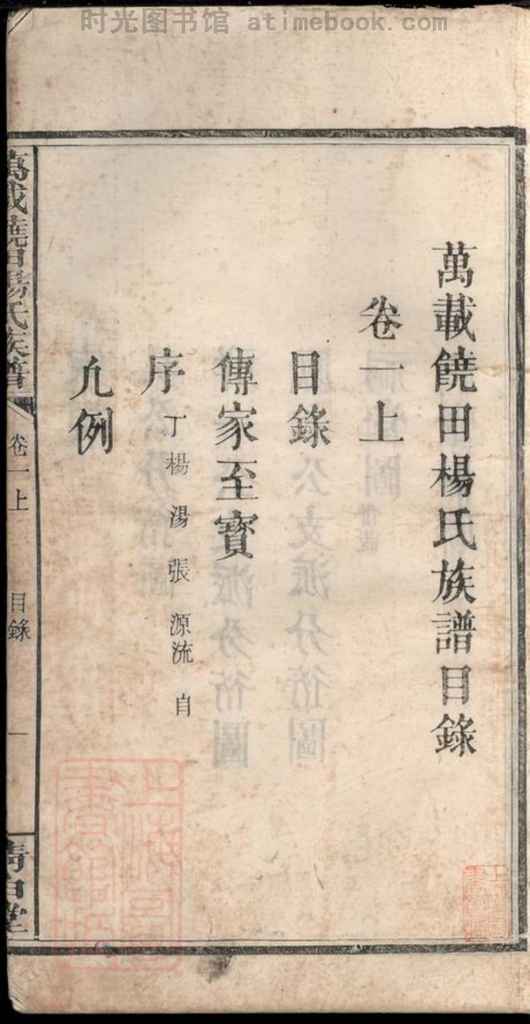 时光图书馆 atimebook.com
萬載饒田楊氏族譜目錄
卷一上
目錄
傳家至寶
序 丁楊湯張源流自
凡例
萬載饒田楊氏族譜 卷一上 目錄 一 清白堂